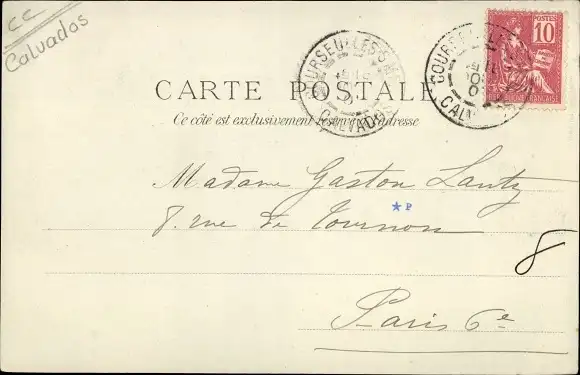 CC
Calvados
POSTES
10
FRANÇAISE
COURSEULLES-S-MER
CALVADOS
COURSEULL
CALV
CARTE POSTALE
Ce côté est exclusivement réservé à l'adresse
Madame Gaston Lantz
8. rue de Tournon
*P
8
Paris 6e